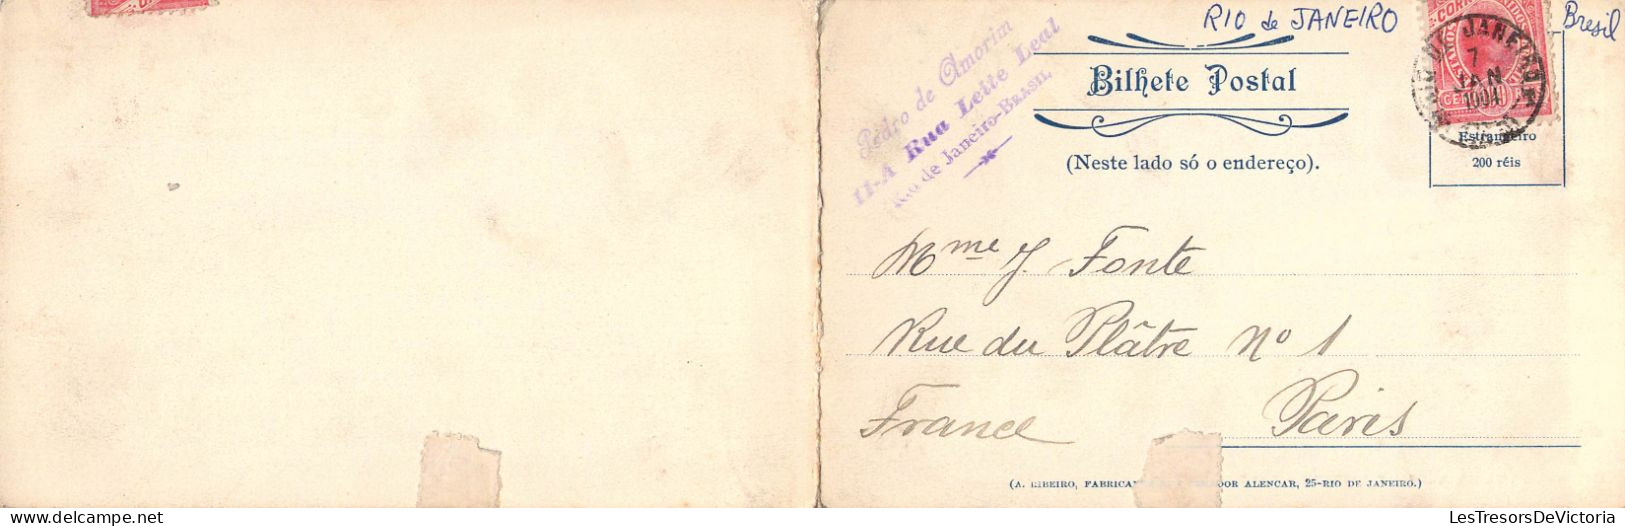 RIO de JANEIRO
Bresil
Pedro de Amorim
11-A Rua Leite Leal
Rio de Janeiro-BRASIL
Bilhete Postal
(Neste lado só o endereço).
JANEIRO
7
JAN
1904
Estrangeiro
200 réis
Mme J. Fonte
Rue du Plâtre No 1
France Paris
(A. RIBEIRO, FABRICA ALENCAR, 25-RIO DE JANEIRO.)
LesTresorsDeVictoria